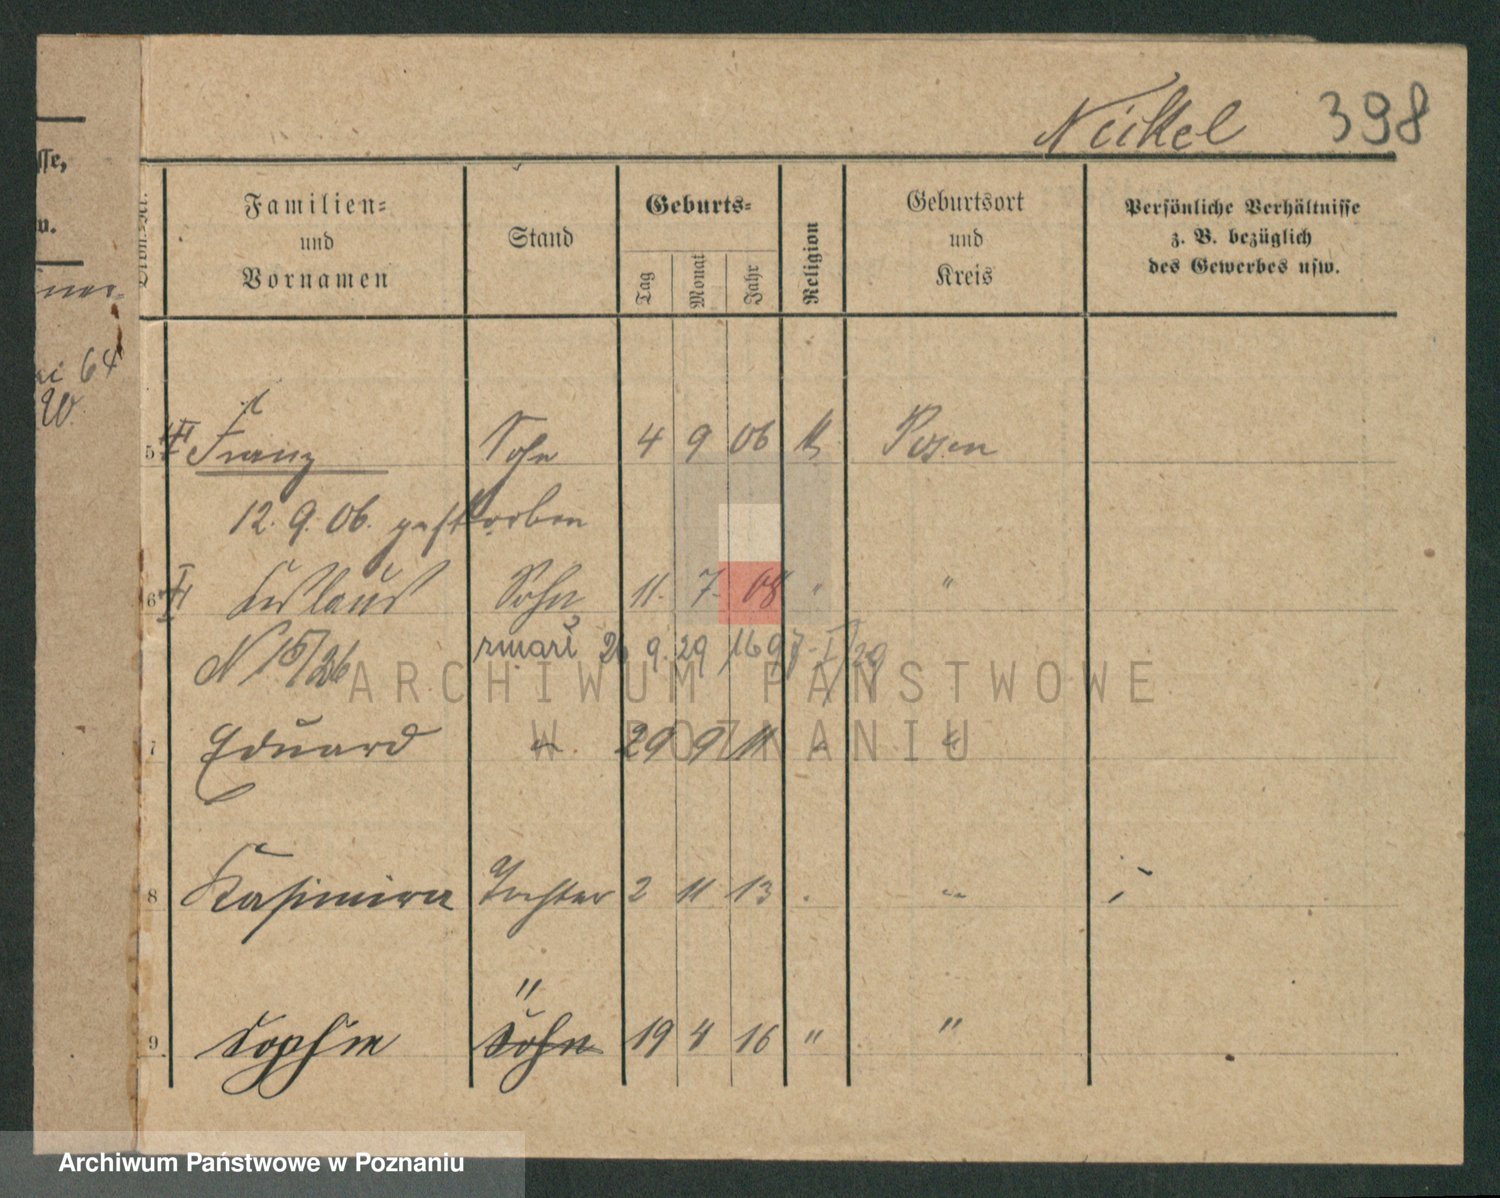 398
sse,
w.
64
W.
Ordn.-Nr.
Familien=
und
Vornamen
Stand
Geburts=
Tag
Monat
Jahr
Religion
Geburtsort
und
Kreis
Persönliche Verhältnisse
z. B. bezüglich
des Gewerbes usw.
5 Franz Sohn 4 9 06 k Posen
12. 9. 06. gestorben
6 Sohn 11. 7. 08 " "
N 15/26 zmarł 26 9. 29 1697 I/29
7 Eduard " 29 9 11 " "
8 Kasimira Tochter 2 11 13 " "
"
9. Sophie Sohn 19 4 16 " "
ARCHIWUM PAŃSTWOWE
W POZNANIU
Archiwum Państwowe w Poznaniu